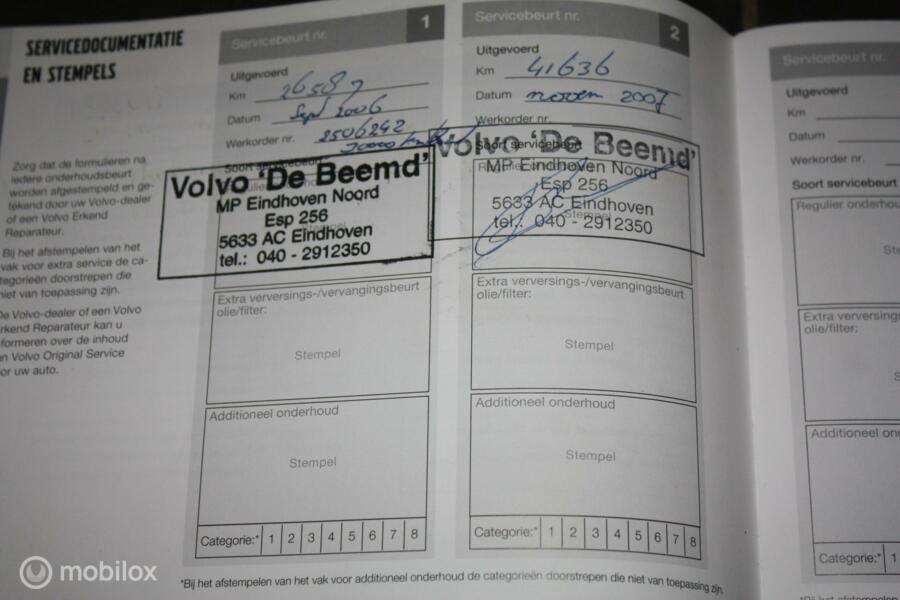 SERVICEDOCUMENTATIE
EN STEMPELS
Zorg dat de formulieren na
iedere onderhoudsbeurt
worden afgestempeld en ge-
tekend door uw Volvo-dealer
of een Volvo Erkend
Reparateur.
Bij het afstempelen van het
vak voor extra service de ca-
tegorieën doorstrepen die
niet van toepassing zijn.
De Volvo-dealer of een Volvo
Erkend Reparateur kan u
formeren over de inhoud
an Volvo Original Service
or uw auto.
Servicebeurt nr. 1
Uitgevoerd
Km 26587
Datum Sept 2006
Werkorder nr. 2506242
Soort servicebeurt
Volvo 'De Beemd'
MP Eindhoven Noord
Esp 256
5633 AC Eindhoven
tel.: 040 - 2912350
Extra verversings-/vervangingsbeurt
olie/filter:
Stempel
Additioneel onderhoud
Stempel
Categorie:* 1 2 3 4 5 6 7 8
Servicebeurt nr. 2
Uitgevoerd
Km 41636
Datum novem 2007
Werkorder nr.
Soort servicebeurt
Volvo 'De Beemd'
MP Eindhoven Noord
Esp 256
5633 AC Eindhoven
Stempel
tel.: 040 - 2912350
Extra verversings-/vervangingsbeurt
olie/filter:
Stempel
Additioneel onderhoud
Stempel
Categorie:* 1 2 3 4 5 6 7 8
*Bij het afstempelen van het vak voor additioneel onderhoud de categorieën doorstrepen die niet van toepassing zijn.
Servicebeurt nr.
Uitgevoerd
Km
Datum
Werkorder nr.
Soort servicebeurt
Regulier onderhou
Ste
Extra verversings
olie/filter:
S
Additioneel on
Categorie:* 1
mobilox